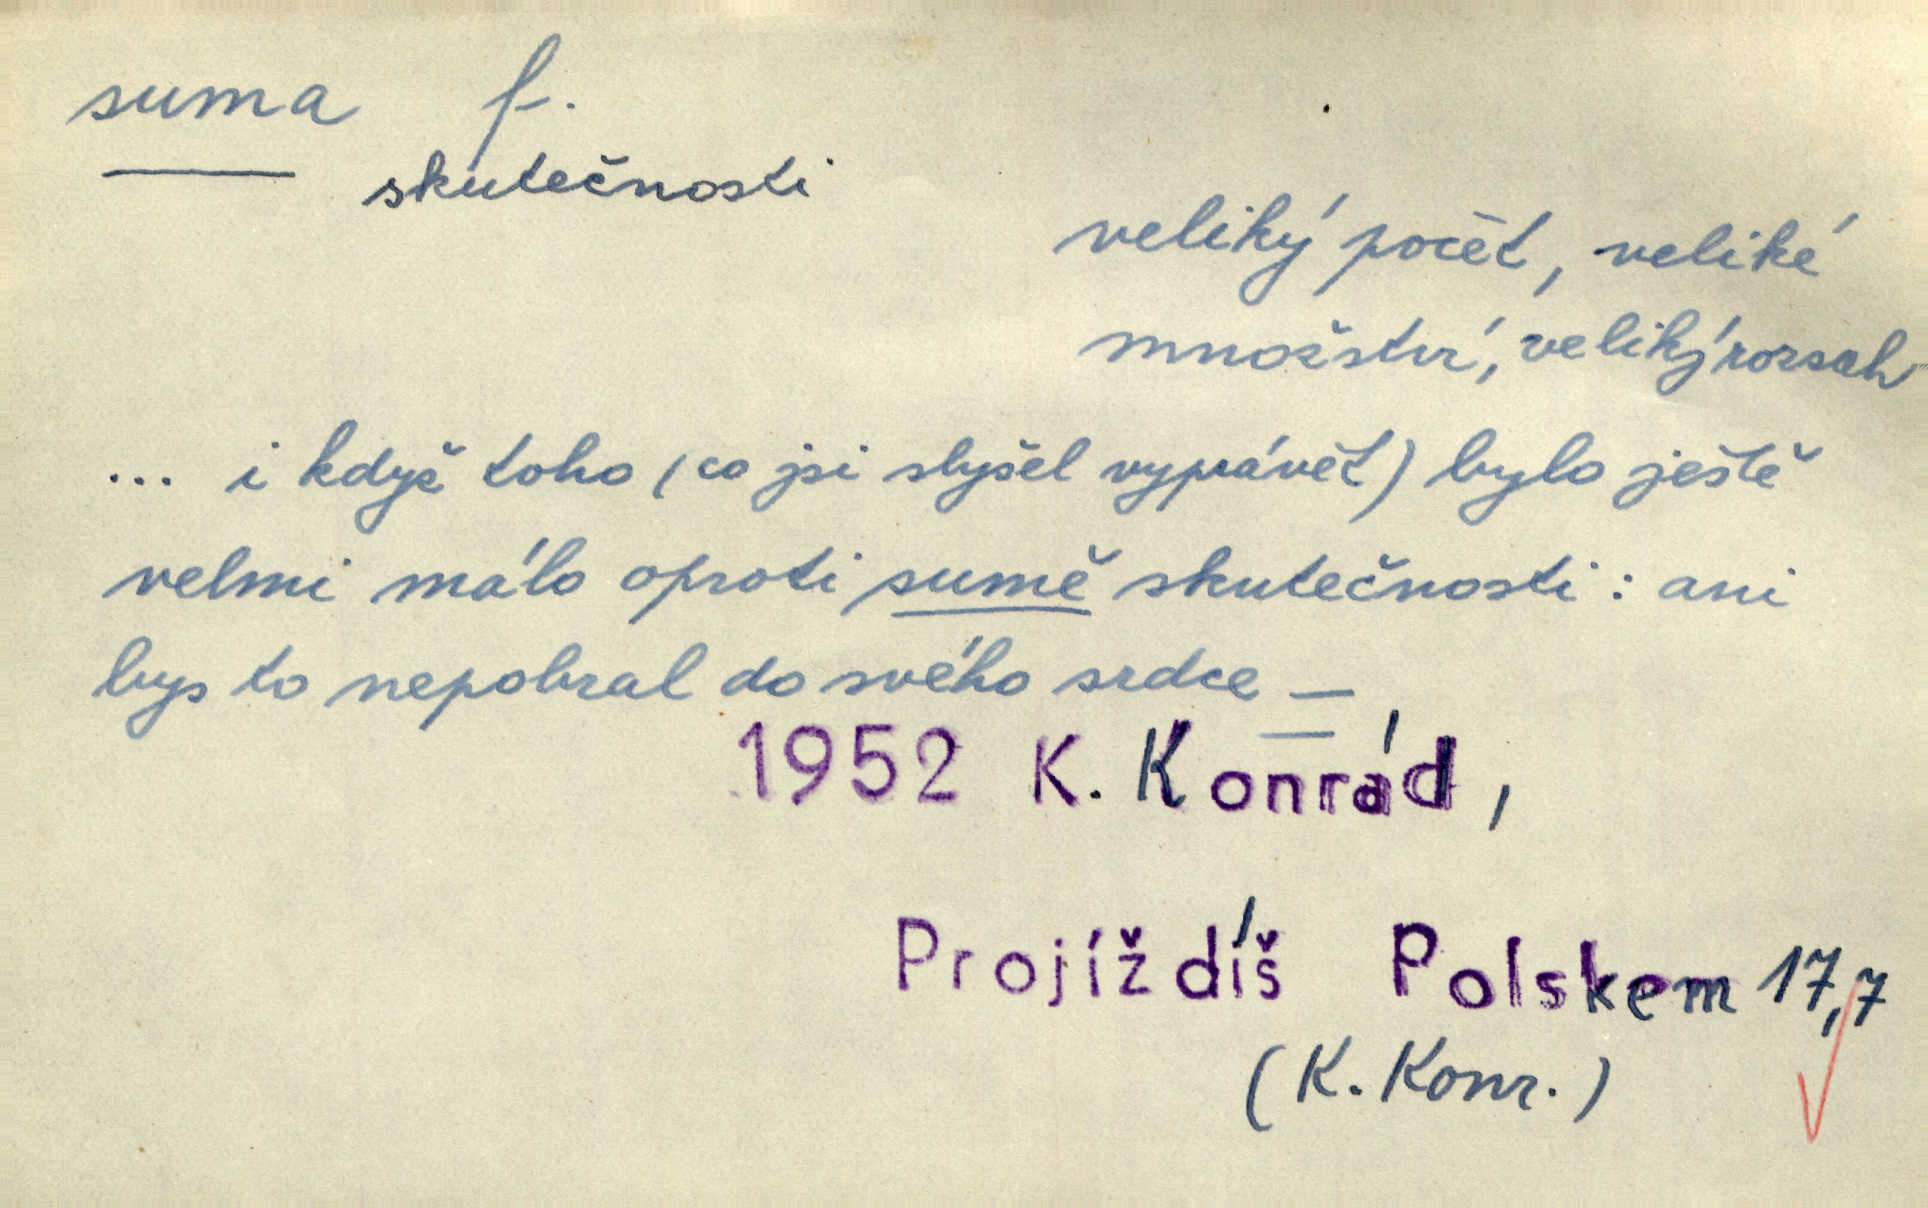 suma f.
skutečnosti
veliký počet, veliké
množství, veliký rozsah
... i když toho (co jsi slyšel vyprávět) bylo ještě
velmi málo oproti sumě skutečnosti: ani
bys to nepobral do svého srdce —
1952 K. Konrád,
Projíždíš Polskem 17,7
(K. Konr.)